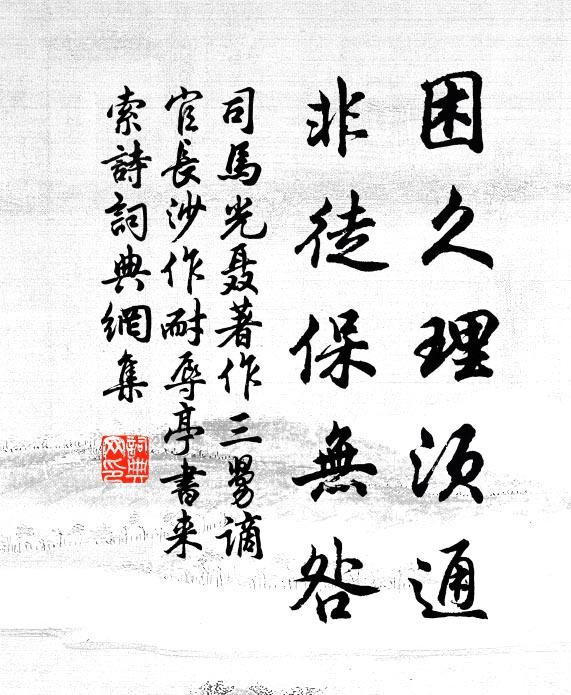 困久理須通
非徒保無咎
司馬光聶著作三舅謫
官長沙作耐辱亭書来
索詩詞典網集
詞典網印